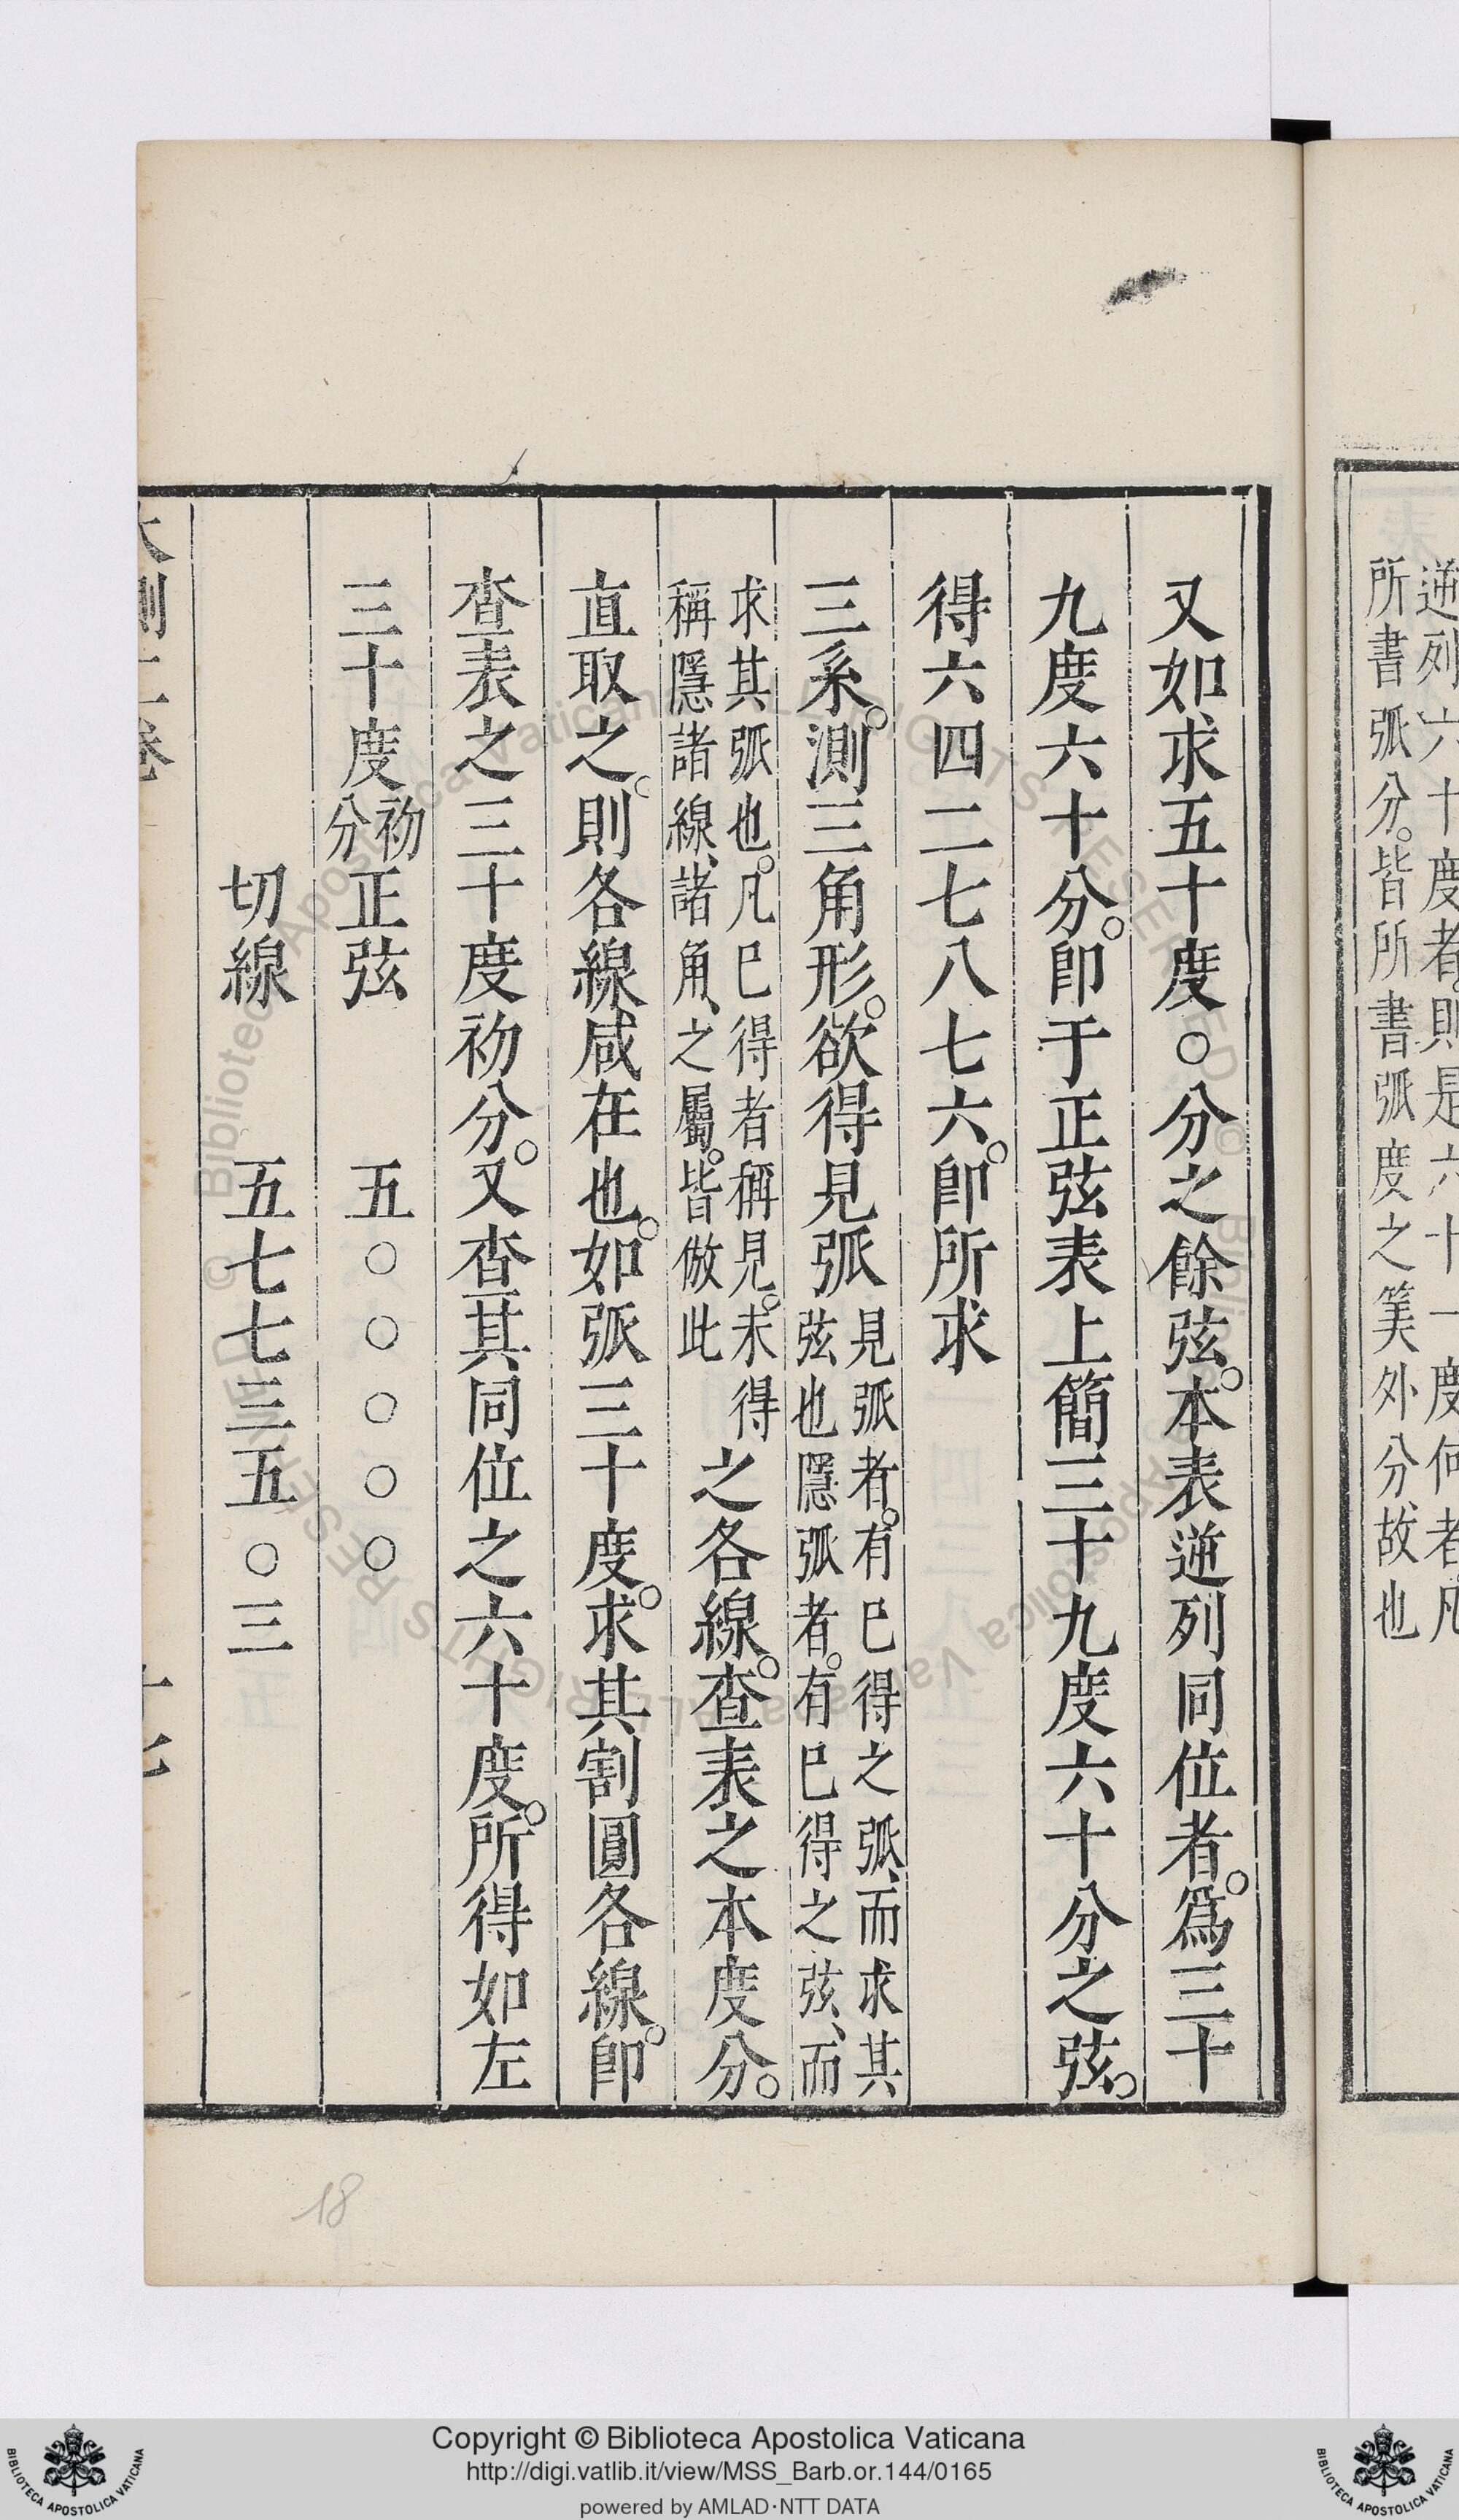 逆列六十度者則是六十一度何者凡
所書弧分。皆所書弧度之筭外分、故也
又如求五十度○分之餘弦。本表逆列同位者。爲三十
九度六十分。卽于正弦表上簡三十九度六十分之弦。
得六四二七八七六。卽所求
三系。測三角形。欲得見弧
見弧者。有已得之弧、而求其
弦也隱弧者。有已得之弦、而
求其弧也。凡已得者稱見。未得
稱隱諸線、諸角、之屬。皆倣此
之各線。查表之本度分。
直取之。則各線咸在也。如弧三十度。求其割圓各線。卽
查表之三十度初分。又查其同位之六十度。所得如左
三十度初分正弦 五○○○○○
切線 五七七三五○三
大測二卷
18
Copyright © Biblioteca Apostolica Vaticana
http://digi.vatlib.it/view/MSS_Barb.or.144/0165
powered by AMLAD·NTT DATA
BIBLIOTECA APOSTOLICA VATICANA
BIBLIOTECA APOSTOLICA VATICANA